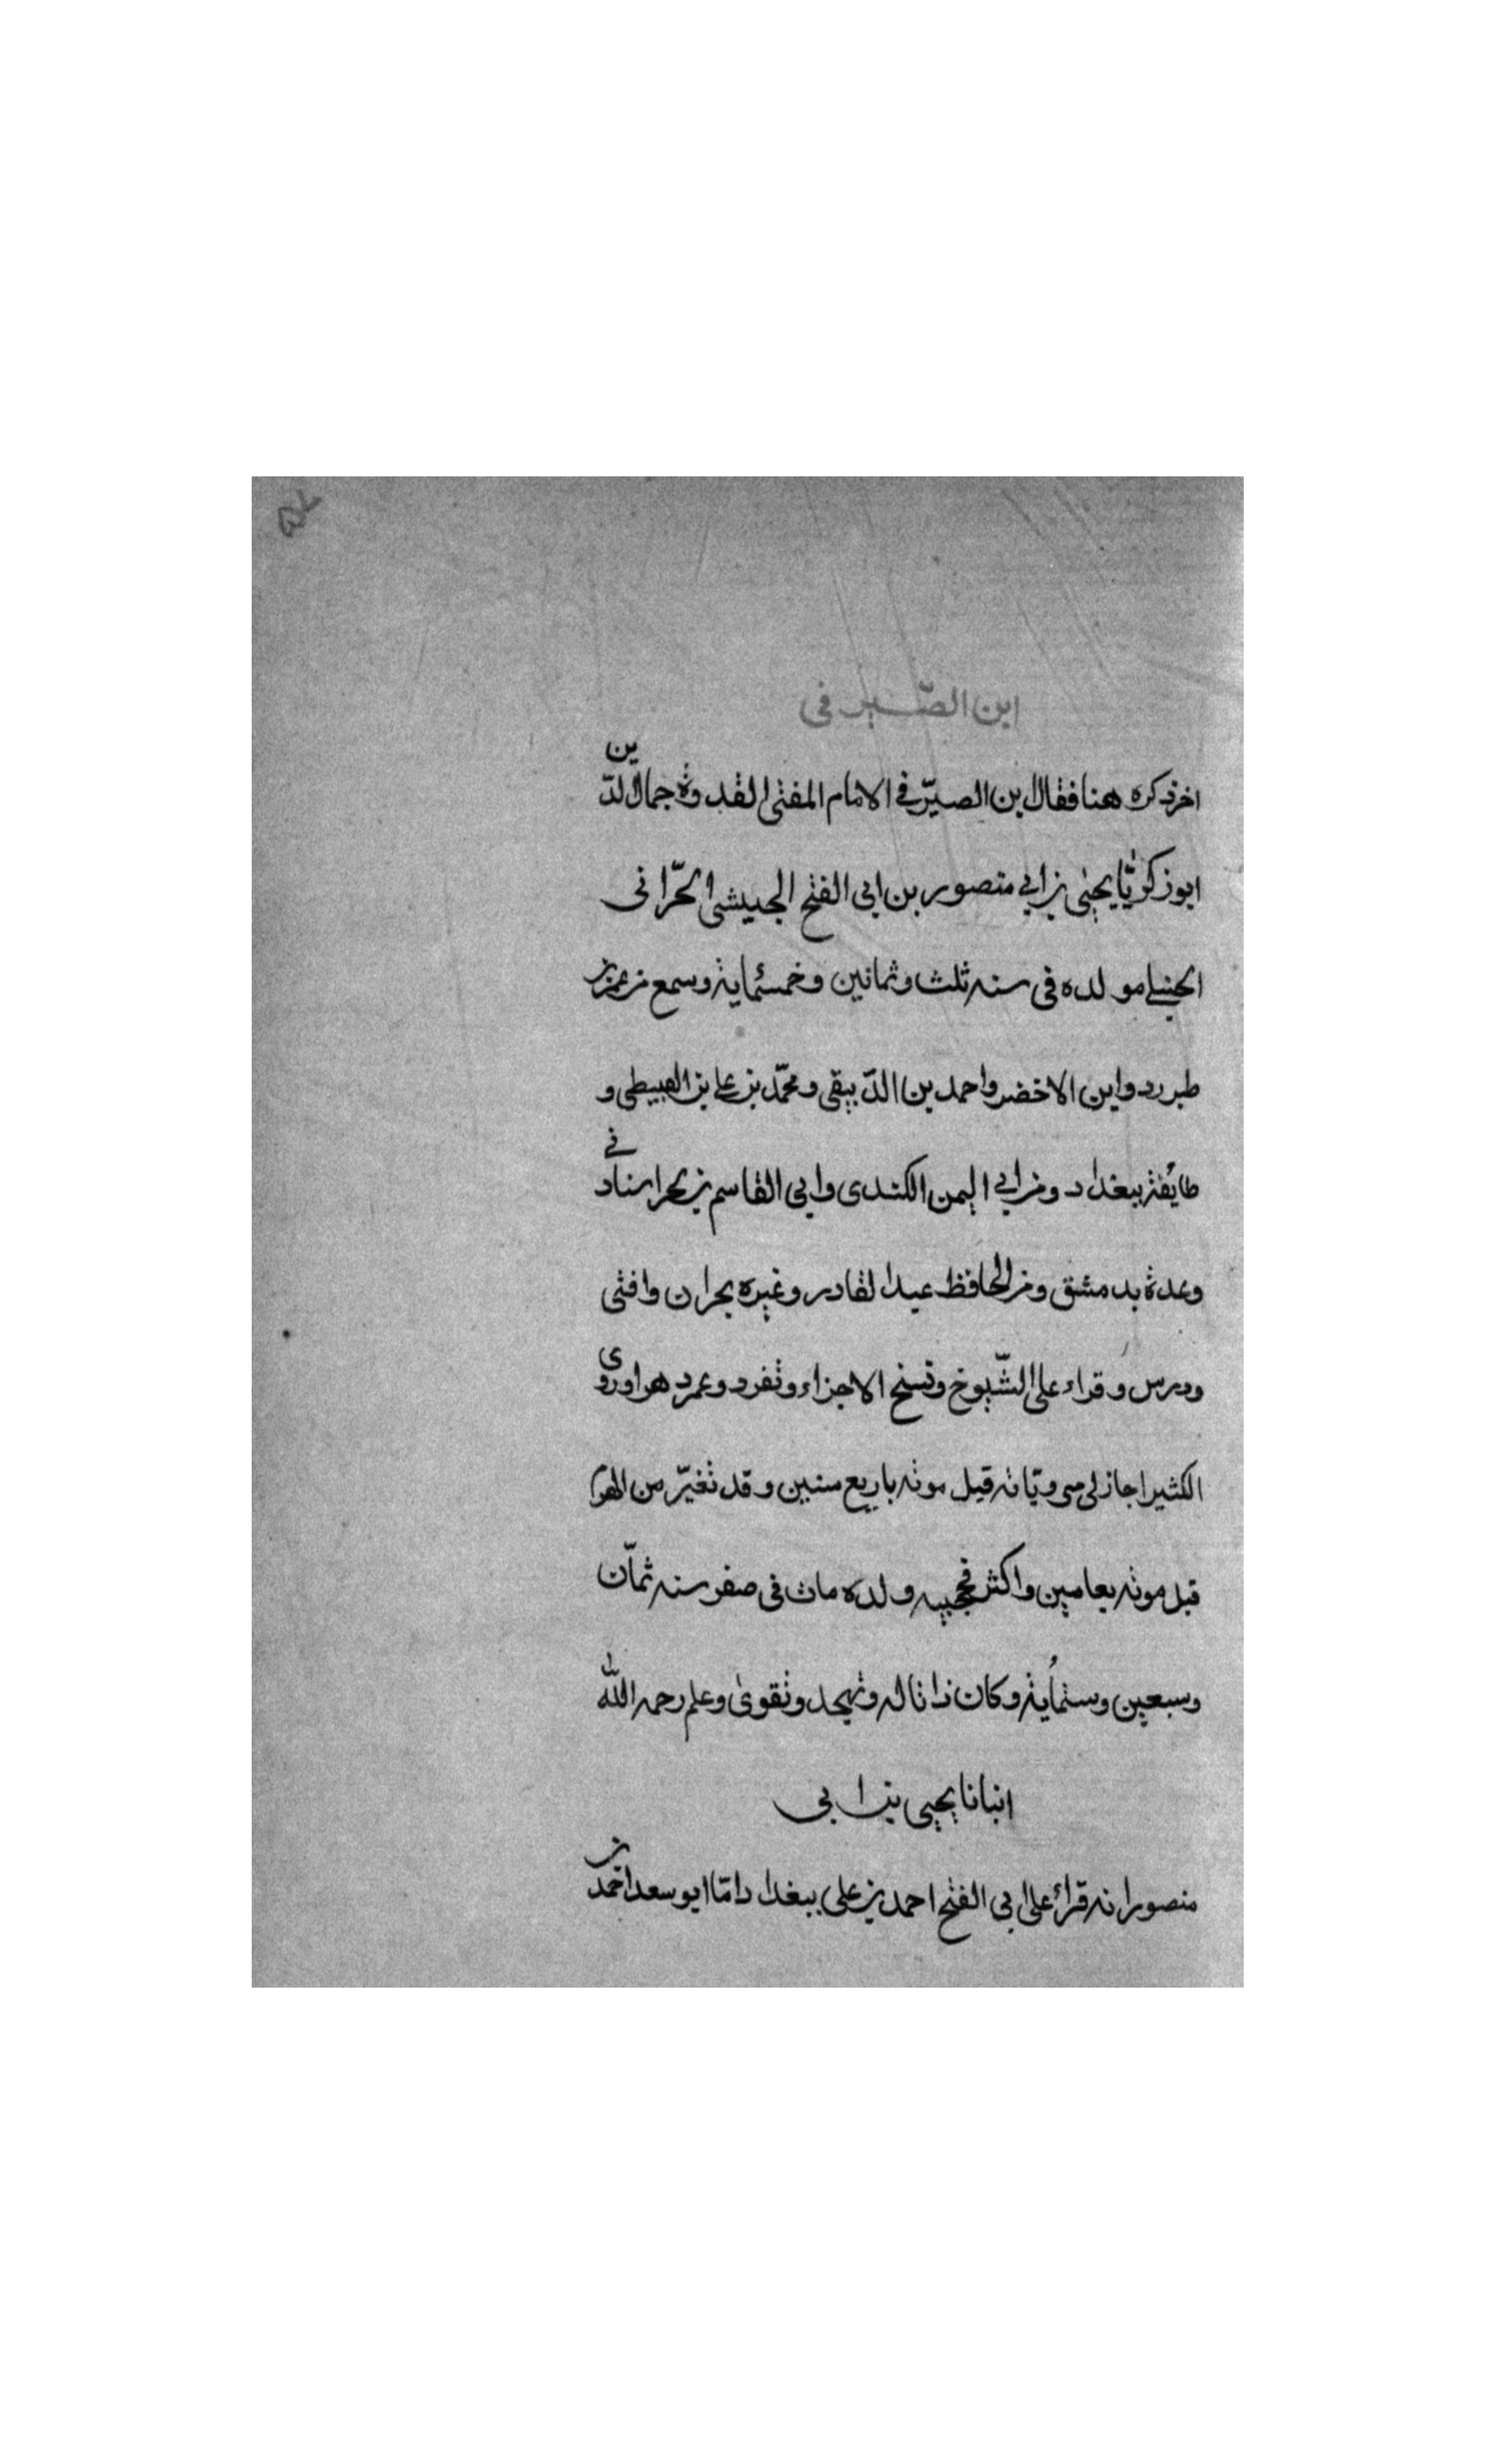 ابن الصّيرفى
اخر ذكره هنا فقال بن الصيّرفي الامام المفتى القدوة جمال الدّين
ابو زكريّا يحيٰى بن ابي منصور بن ابى الفتح الجيشى الحّرانى
الحنبلي مولده فى سنه ثلث وثمانين وخمسمٔاية وسمع من عمر بن
طبررد وابن الاخضر واحمد بن الدّبيقى ومحمّد بن علي بن القبيطى و
طائفة ببغداد ومن ابي اليمن الكندى وابى القاسم بن
وعدة بدمشق ومن الحافظ عبدا لقادر وغيره بحران وافتى
ودرس وقراء على الشّيوخ ونسخ الاجزاء وتفرد وعمر دهرا وروى
الكثير اجاز لى مروّياته قبل موته باربع سنين وقد تغيّر من الهرم
قبل موته بعامين واكثر ولده مات فى صفر سنه ثمّان
وسبعين وستمأية وكان ذا تاله وتهجد وتقوىٰ وعلم رحمه اللّٰه
انبانا يحيى بن ابى
منصور انه قرأ على ابى الفتح احمد بن على ببغداد امّا ابو سعد احمد بن